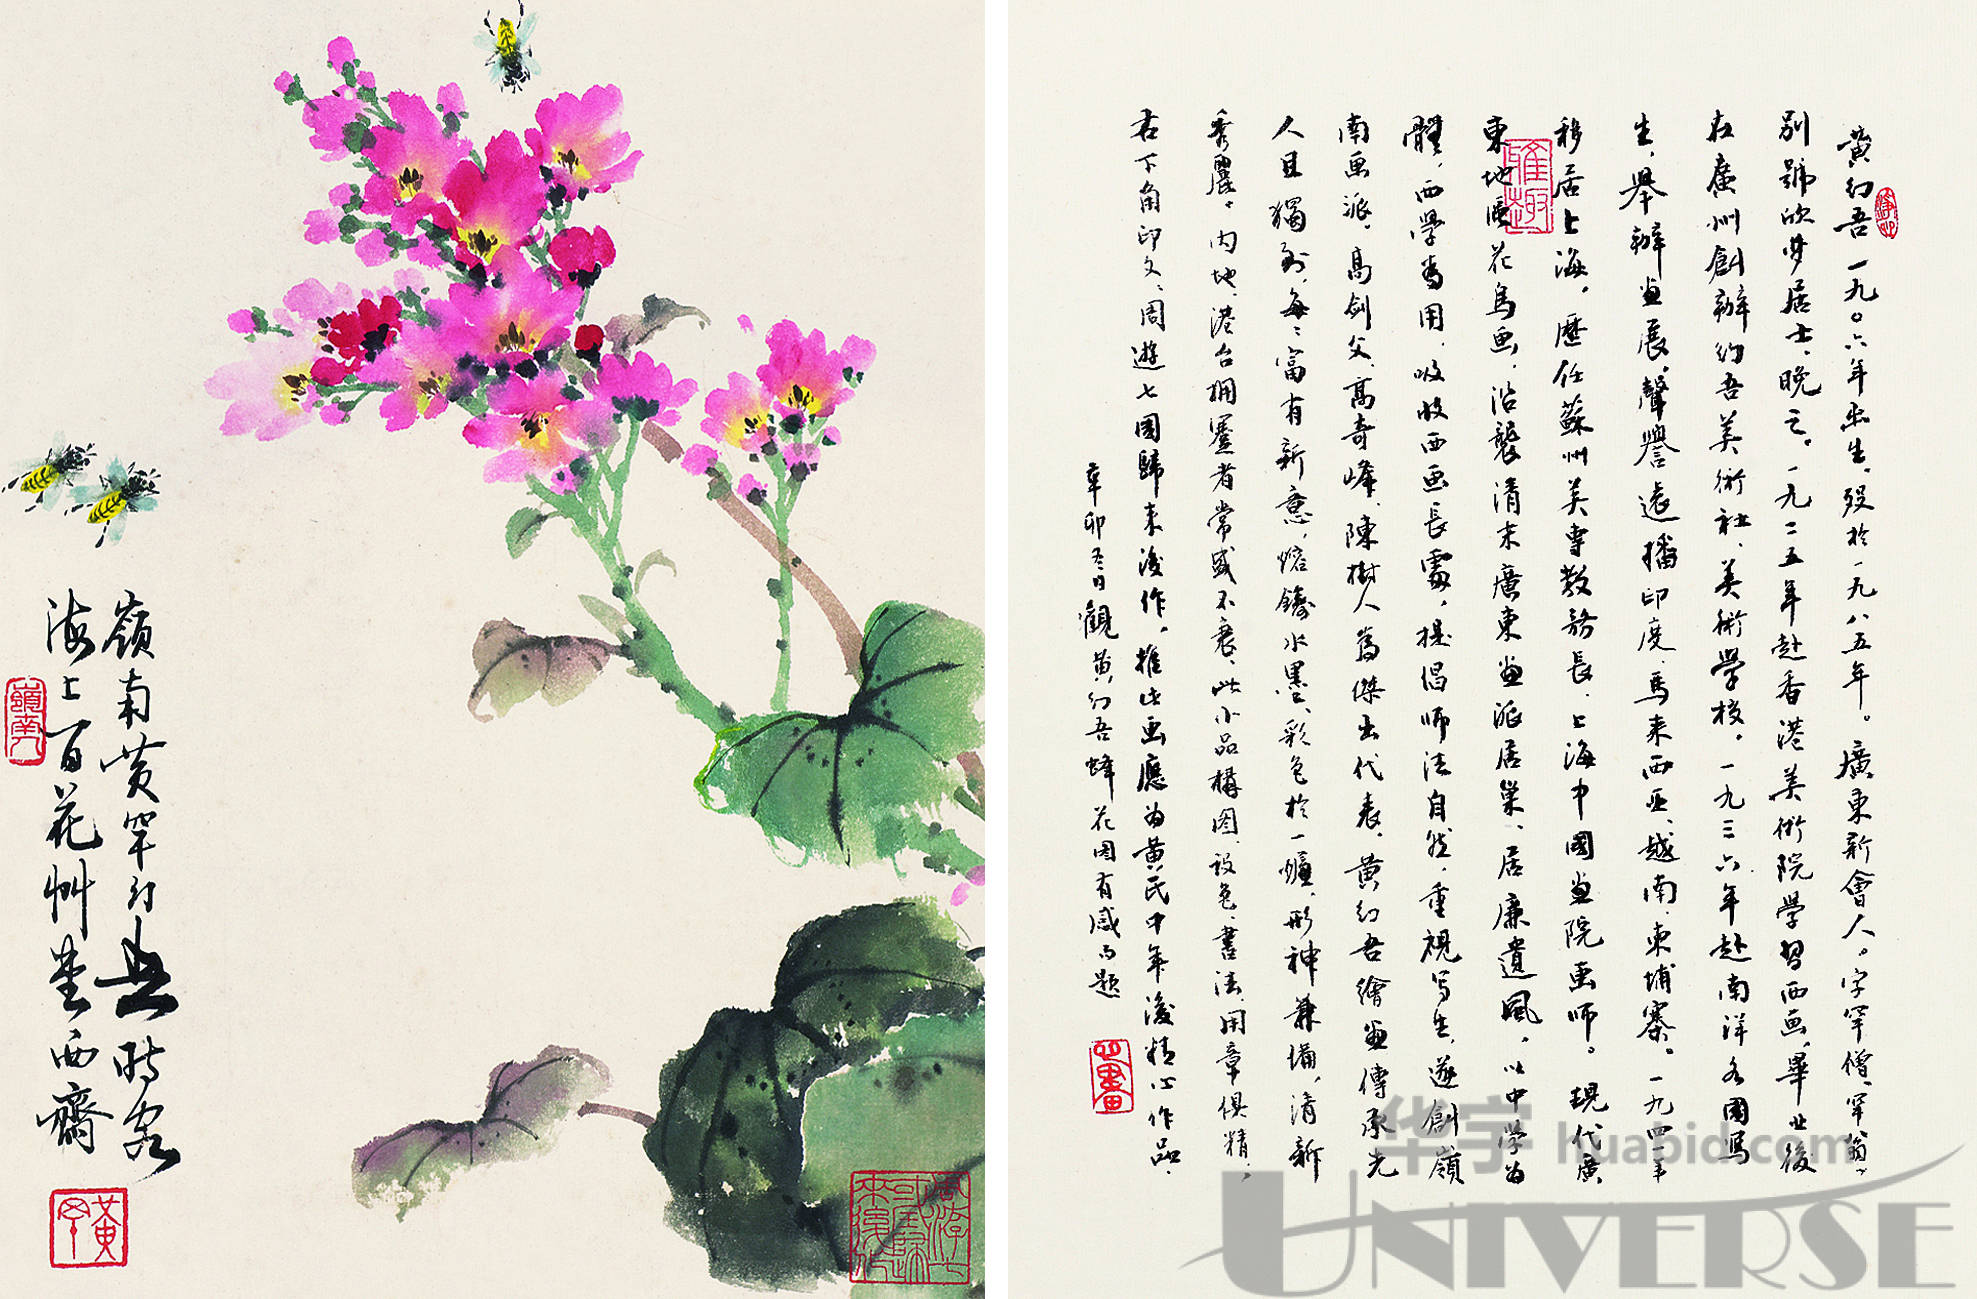 嶺南黄罕幻吾時客
海上百花艸堂西齋
嶺南人
黄罕
周游七国歸来後作
黄幻吾一九〇六年出生,殁於一九八五年。廣東新會人。字罕僧、罕翁,
別號欣夢居士、晚之。一九二五年赴香港美術院學習西画,畢业後
在廣州創辦幻吾美術社、美術學校,一九三六年赴南洋各國寫
生,舉辦画展,聲譽遠播印度、馬来西亚、越南、柬埔寨。一九四一年
移居上海,歷任蘇州美専教務長、上海中國画院画师。現代廣
東地區花鸟画,沿襲清末廣東画派居巢、居廉遺風,以中學為
體,西學為用,吸收西画長處,提倡师法自然,重視写生,遂創嶺
南画派,高劍父、高奇峰、陳樹人為傑出代表。黄幻吾繪画傳承先
人且獨到,每每富有新意,熔鑄水墨、彩色於一爐,形神兼備,清新
秀麗。内地、港台拥躉者常盛不衰,此小品構图、設色、書法、用章俱精,
右下角印文、周遊七國歸来後作,推此画應为黄氏中年後精心作品.
辛卯冬日觀黄幻吾蜂花图有感而題
雅趣
华宇
huabid.com
UNIVERSE